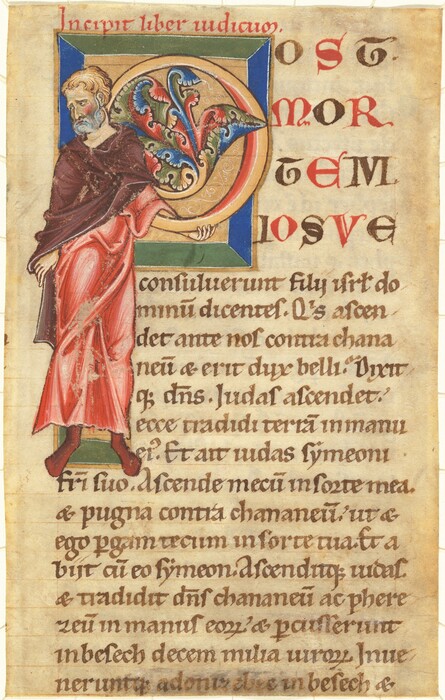 Incipit liber iudicum.
POST
MOR
TEM
IOSVE
consuluerunt filij isrł do
minum dicentes. Qis ascen-
det ante nos contra chana
neū & erit dux belli? Dixit
q; dn̄s. Iudas ascendet.
ecce tradidi terrā in manu
ei'. Et ait iudas sẏmeoni
fr̄i suo. Ascende mecū in sorte mea.
& pugna contra chananeū. ut &
ego ꝑgam tecum in sorte tua. Et a
bijt cū eo sẏmeon. Ascenditq; iudas
& tradidit dn̄s chananeū ac phere
zeū in manus eoꝝ. & ꝑcusserunt
in besech decem milia uiroꝝ. Inue
neruntq; adonibesec in besech &